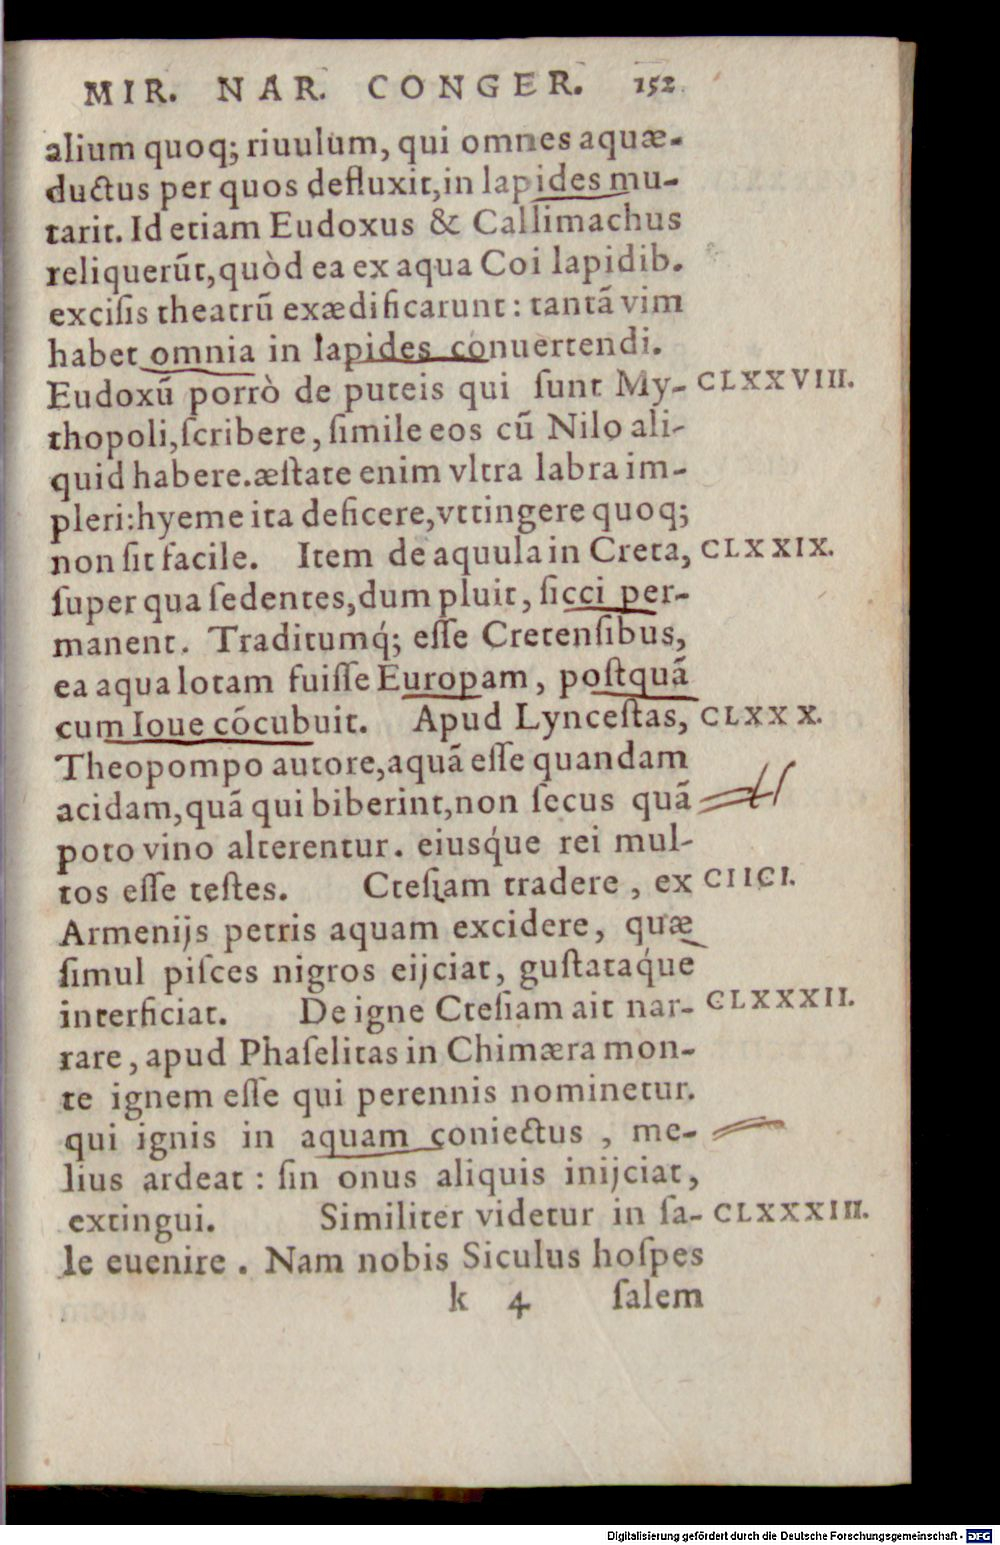 MIR. NAR. CONGER. 152
alium quoq; riuulum, qui omnes aquæ-
ductus per quos defluxit, in lapides mu-
tarit. Id etiam Eudoxus & Callimachus
reliquerūt, quòd ea ex aqua Coi lapidib.
exciſis theatrū exædificarunt: tantā vim
habet omnia in lapides conuertendi.
Eudoxū porrò de puteis qui ſunt My- CLXXVIII.
thopoli, ſcribere, ſimile eos cū Nilo ali-
quid habere. æſtate enim vltra labra im-
pleri: hyeme ita deficere, vttingere quoq;
non ſit facile. Item de aquula in Creta, CLXXIX.
ſuper qua ſedentes, dum pluit, ſicci per-
manent. Traditumq́; eſſe Cretenſibus,
ea aqua lotam fuiſſe Europam, poſtquā
cum Ioue cōcubuit. Apud Lynceſtas, CLXXX.
Theopompo autore, aquā eſſe quandam
acidam, quā qui biberint, non ſecus quā
poto vino alterentur. eiusq́ue rei mul-
tos eſſe teſtes. Cteſiam tradere, ex CIICI.
Armenijs petris aquam excidere, quæ
ſimul piſces nigros eijciat, guſtataq́ue
interficiat. De igne Cteſiam ait nar- CLXXXII.
rare, apud Phaſelitas in Chimæra mon-
te ignem eſſe qui perennis nominetur.
qui ignis in aquam coniectus, me-
lius ardeat: ſin onus aliquis inijciat,
extingui. Similiter videtur in ſa- CLXXXIII.
le euenire. Nam nobis Siculus hoſpes
k 4 ſalem
Digitalisierung gefördert durch die Deutsche Forschungsgemeinschaft - DFG